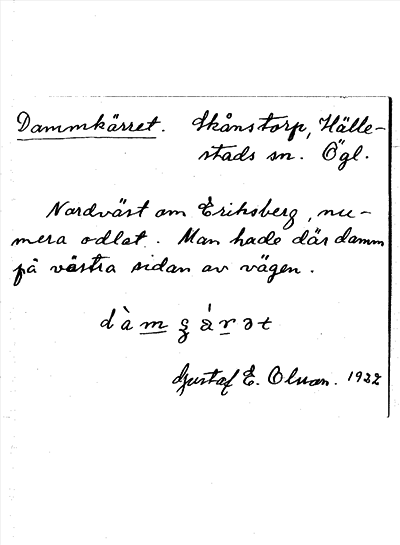 Dammkärret. Skånstorp, Hälle-
stads sn. Ögl.
Nordväst om Eriksberg, nu-
mera odlat. Man hade där damm
på västra sidan av vägen.
Gustaf E. Olsson. 1932